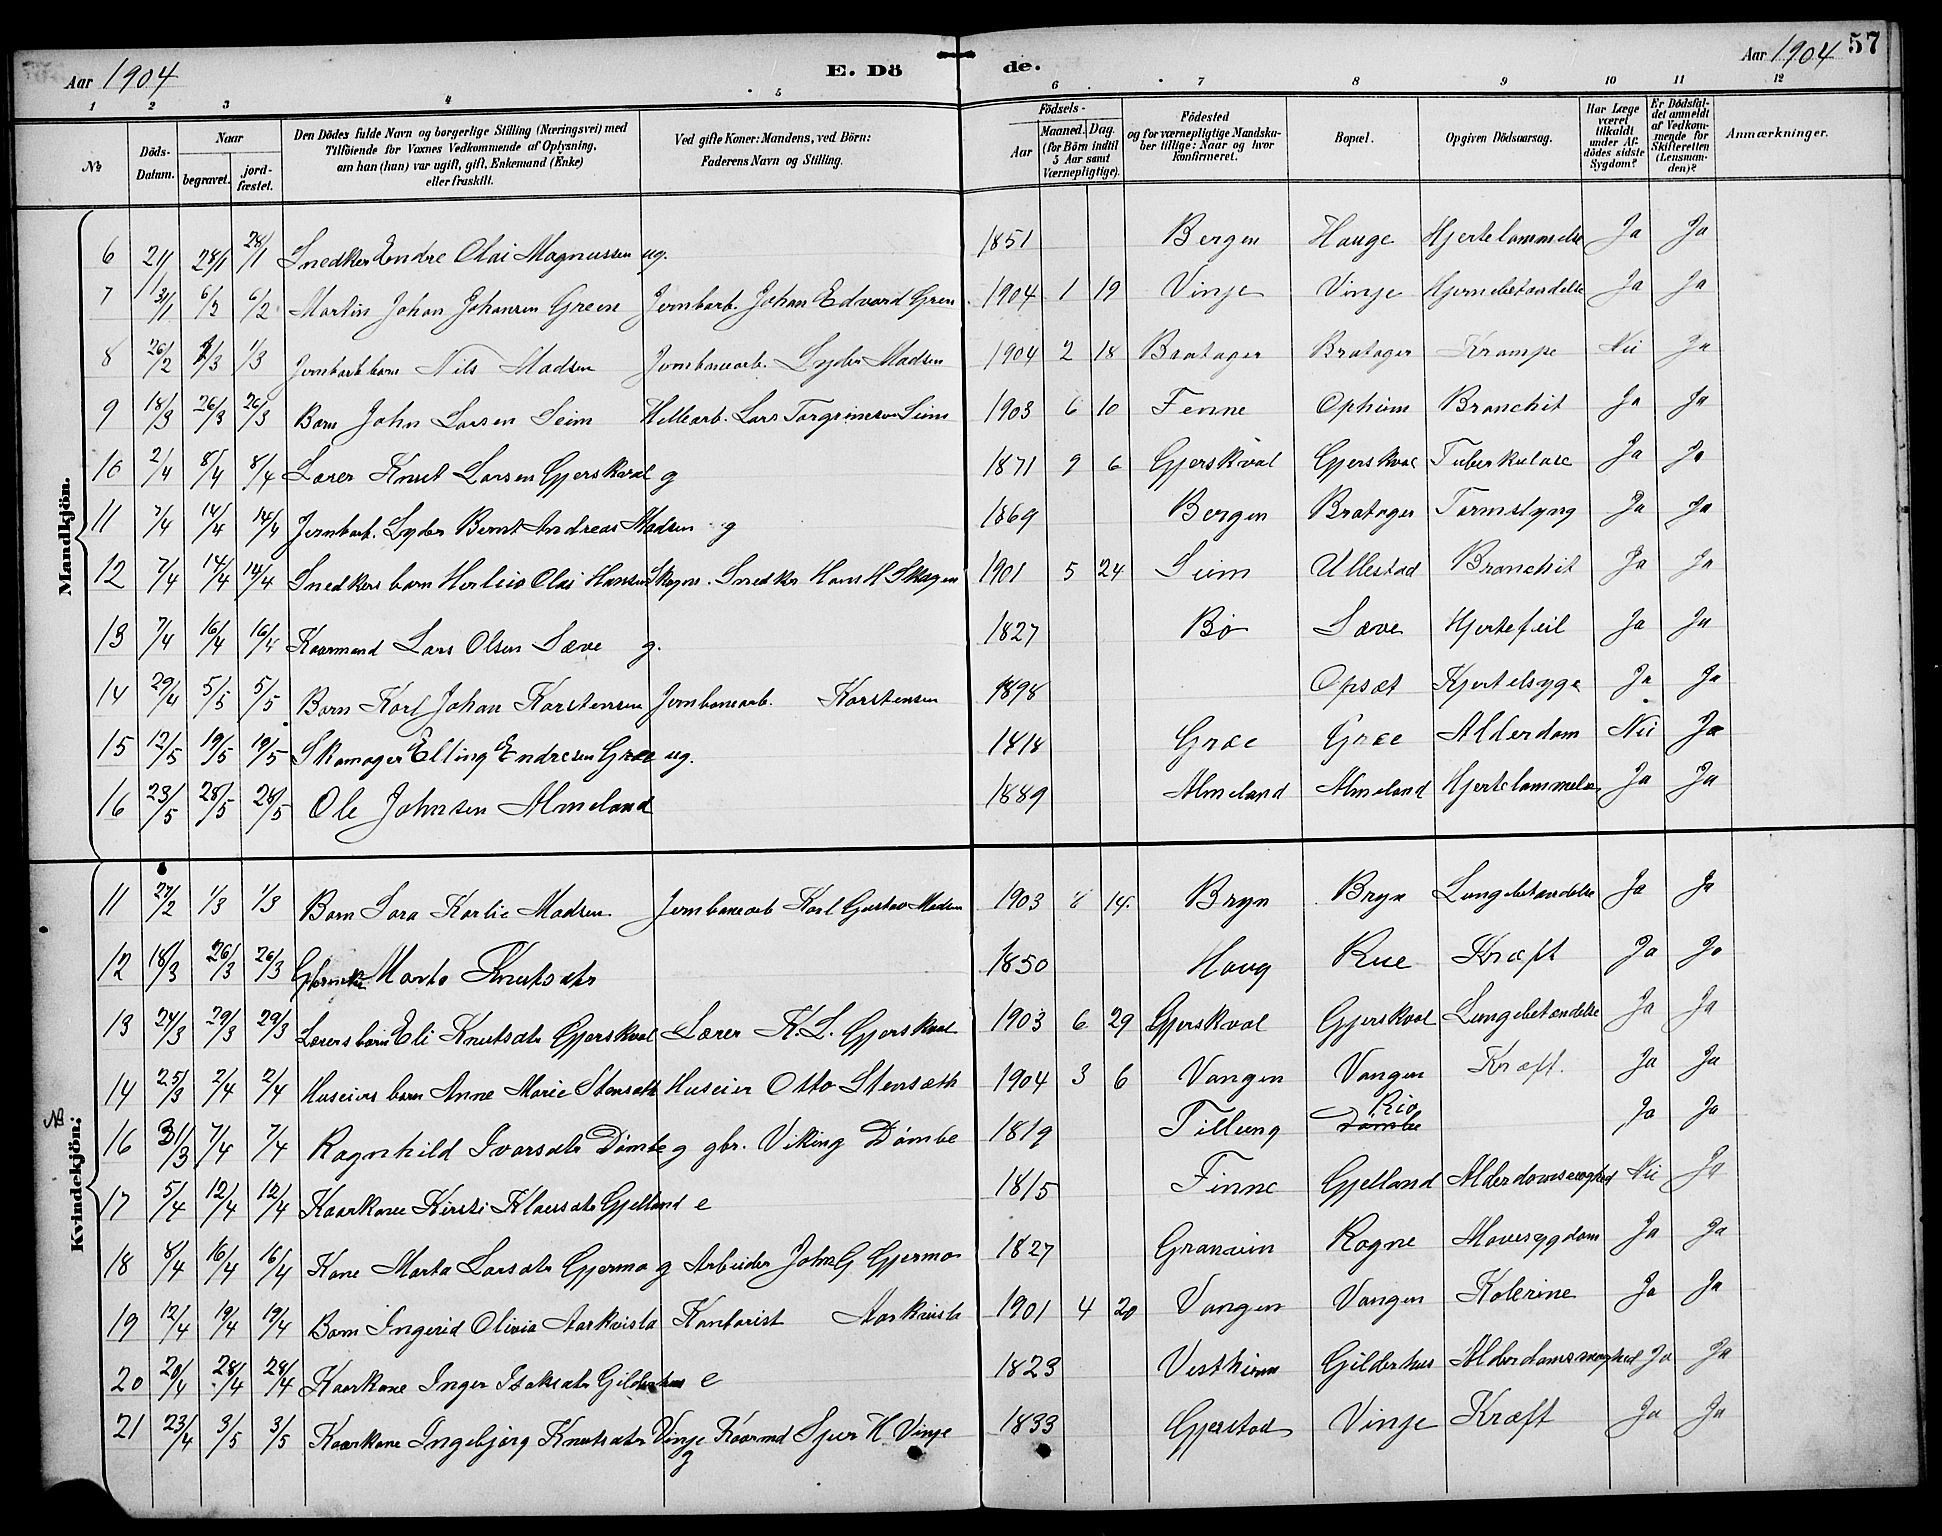 Aar 1904 E. Dö de. Aar 1904 57
1 2 3 4 5 6 7 8 9 10 11 12
№ Döds-Datum. Naar begravet. jordfæstet. Den Dödes fulde Navn og borgerlige Stilling (Næringsvei) med Tilföiende for Voxnes Vedkommende af Oplysning, om han (hun) var ugift, gift, Enkemand (Enke) eller fraskilt. Ved gifte Koner: Mandens, ved Börn: Faderens Navn og Stilling. Födsels- Aar Maaned. Dag. (for Börn indtil 5 Aar samt Værnepligtige). Födested og for værnepligtige Mandskaber tillige: Naar og hvor konfirmeret. Bopæl. Opgiven Dödsaarsag. Har Læge været tilkaldt under Afdödes sidste Sygdom? Er Dödsfaldet anmeldt af Vedkommende for Skifteretten (Lensmanden)? Anmærkninger.
Mandkjön.
6 21/1 28/1 28/1 Snedker Endre Olai Magnussen ug. 1851 Bergen Hauge Hjertelammelse Ja Ja
7 31/1 6/2 6/2 Martin Johan Johansen Green Jernbarb. Johan Edvard Green 1904 1 19 Vinje Vinje Hjernebetændelse Ja Ja
8 26/2 1/3 1/3 Jernbarb barn Nils Madsen Jernbanearb. Lyder Madsen 1904 2 18 Bratager Bratager Krampe Nei Ja
9 18/3 26/3 26/3 Barn John Larsen Seim Hellearb. Lars Torgrimsen Seim 1903 6 10 Fenne Opheim Bronchit Ja Ja
10 2/4 8/4 8/4 Lærer Knut Larsen Gjerskval g 1871 9 6 Gjerskval Gjerskval Tuberkulose Ja Ja
11 7/4 14/4 14/4 Jernbarb. Lyder Bernt Andreas Madsen g 1869 Bergen Bratager Tarmslyng Ja Ja
12 7/4 14/4 14/4 Snedkers barn Herleiv Olai Hansen Skogen. Snedker Hans H Skogen 1901 5 24 Seim Ullestad Bronchit Ja Ja
13 7/4 16/4 16/4 Kaarmand Lars Olsen Sæve g. 1827 Bø Sæve Hjertefeil Ja Ja
14 29/4 5/5 5/5 Barn Karl Johan Karstensen Jernbanearb. Karstensen 1898 Opsæt Kjertelsyge Ja Ja
15 12/5 19/5 19/5 Skomager Elling Endresen Græe ug. 1818 Græe Græe Alderdom Nei Ja
16 23/5 28/5 28/5 Ole Johnsen Almeland 1889 Almeland Almeland Hjertelammelse Ja Ja
Kvindekjön:
№
11 27/2 1/3 1/3 Barn Sara Karlie Madsen Jernbanearb Karl Gustav Madsen 1903 8 14. Bryn Bryn Lungebetændelse Ja Ja
12 18/3 26/3 26/3 Marta Knutsdtr 1850 Haug Rue Kræft Ja Ja
13 24/3 29/3 29/3 Lærers barn Eli Knutsdtr Gjerskval Lærer K. L. Gjerskval 1903 6 29 Gjerskval Gjerskval Lungebetændelse Ja Ja
14 25/3 2/4 2/4 Huseiers barn Anne Marie Stensæth Huseier Otto Stensæth 1904 3 6 Vangen Vangen Kræft. Ja Ja
16 31/3 7/4 7/4 Ragnhild Ivarsdtr Dømbe g gbr. Viking Dømbe 1819 Tillung Rio Dømbe Ja Ja
17 5/4 12/4 12/4 Kaarkone Kirsti Klausdtr Gjelland e 1815 Finne Gjelland Alderdomssvaghed Nei Ja
18 8/4 16/4 16/4 Kone Marta Larsdtr Gjermo g Arbeider John G Gjermo 1827 Granvin Rogne Mavesygdom Ja Ja
19 12/4 19/4 19/4 Barn Ingerid Olivia Aarkvisla Kontorist Aarkvisla 1901 4 20 Vangen Vangen Kolerine Ja Ja
20 20/4 28/4 28/4 Kaarkone Inger Isaksdtr Gilderhus e 1823 Vestheim Gilderhus Alderdomssvaghed Ja Ja
21 23/4 3/5 3/5 Kaarkone Ingebjørg Knutsdtr Vinje g Kaarmd Sjur K Vinje 1833 Gjerstad Vinje Kræft Ja Ja